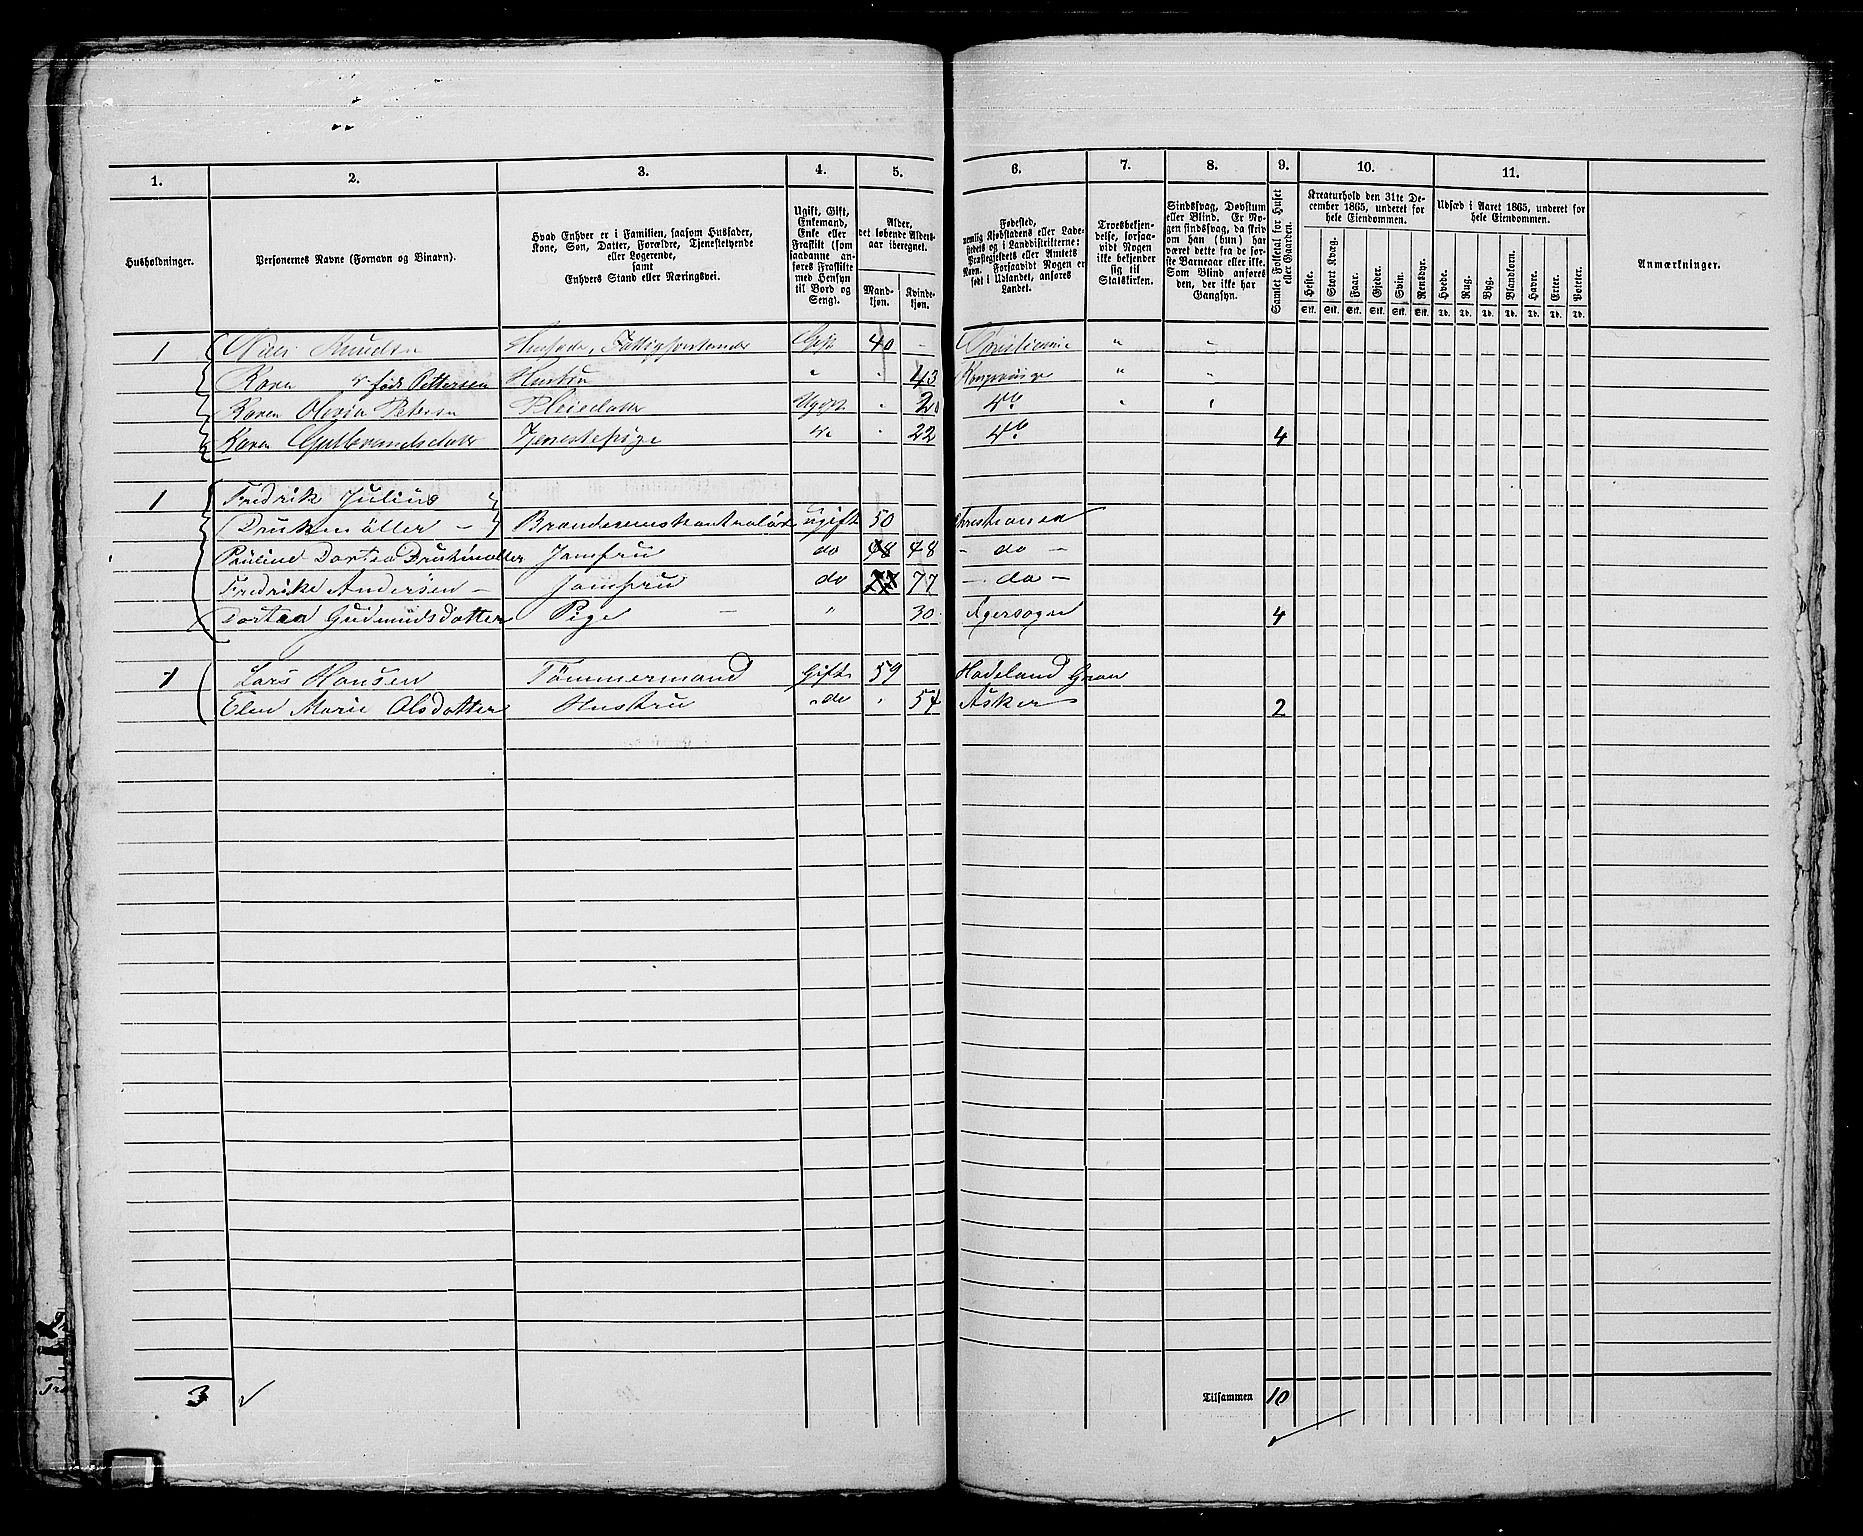 1. 2. 3. 4. 5. 6. 7. 8. 9. 10. 11.
Husholdninger.
Personernes Navne (Fornavn og Binavn).
Hvad Enhver er i Familien, saasom Husfader,
Kone, Søn, Datter, Forældre, Tjenestetyende
eller Logerende,
samt
Enhvers Stand eller Næringsvei.
Ugift, Gift,
Enkemand,
Enke eller
Fraskilt (som
saadanne an-
føres Fraskilte
med Hensyn
til Bord og
Seng).
Alder,
det løbende Alders-
aar iberegnet.
Mand-
kjøn.
Kvinde-
kjøn.
Fødested,
nemlig Kjøbstadens eller Lade-
stedets og i Landdistrikterne:
Præstegjeldets eller Amtets
Navn. Forsaavidt Nogen er
født i Udlandet, anføres
Landet.
Troesbekjen-
delse, forsaa-
vidt Nogen
ikke bekjender
sig til
Statskirken.
Sindssvag, Døvstum
eller Blind. Er No-
gen sindssvag, da skriv
om han (hun) har
været dette fra de før-
ste Barneaar eller ikke.
Som Blind anføres
den, der ikke har
Gangsyn.
Samlet Folketal for Huset
eller Gaarden.
Kreaturhold den 31te De-
cember 1865, underet for
hele Eiendommen.
Heste. Stort Kvæg. Faar. Gjeder. Sviin. Rensdyr.
Stk. Stk. Stk. Stk. Stk. Stk.
Udsæd i Aaret 1865, underet for
hele Eiendommen.
Hvede. Rug. Byg. Blandkorn. Havre. Erter. Poteter.
Td. Td. Td. Td. Td. Td. Td.
Anmærkninger.
1 Knudsen Husfader, Fattigforstander Gift 40 - Christiania " "
Karen født Pettersen Hustru " . 43 " "
Karen Olivia Petersen Pleiedatter Ugift . 20 do " "
Karen Gulbrandsdatter Tjenestepige do . 22 do 4
1 Fredrik Julius
Druckmøller - ugift 50 Christiania
Pauline Dortea Jomfru do 48 48 - do -
Fredrike Andersen - Jomfru do 77 77 - do -
Dortea Gudmundsdotter Pige - " 30 Agersogn 4
1 Lars Hansen Tømmermand Gift 59 Hadeland Gran
Elen Marie Olsdotter Hustru do . 54 Asker 2
3 Tilsammen 10